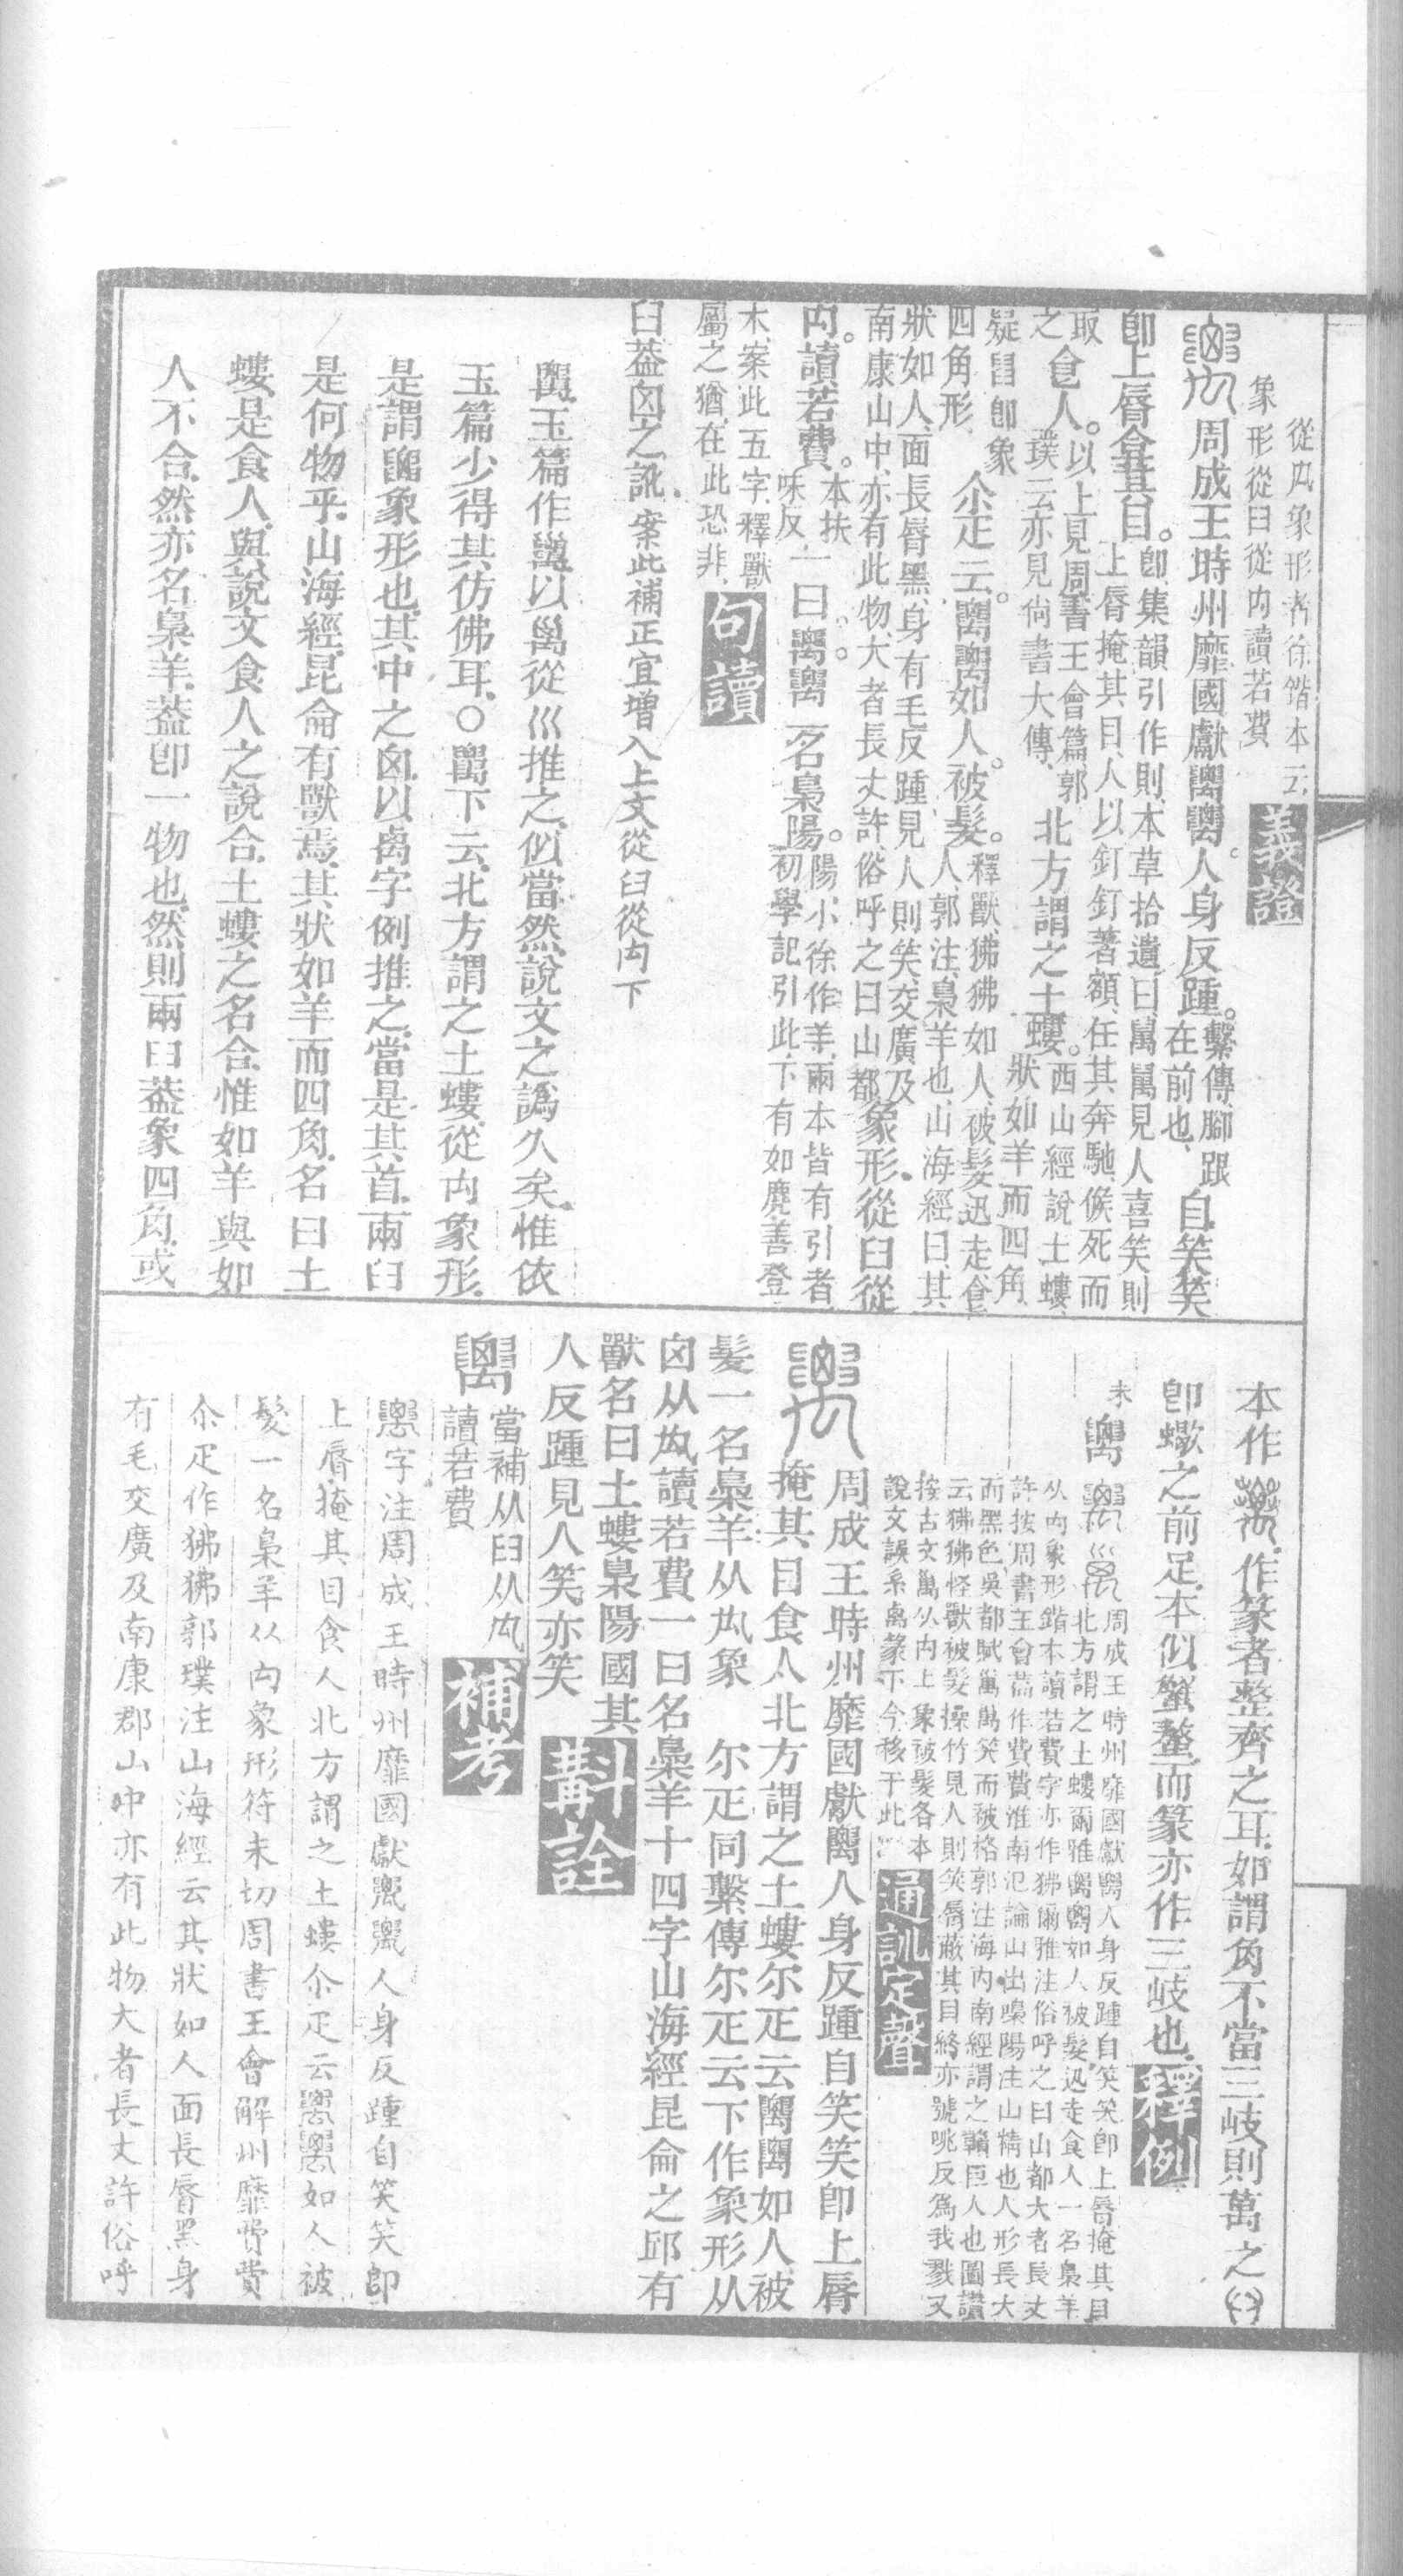 從厹象形者徐鍇本云
象形從臼從禸讀若費 義證
周成王時州靡國獻𥜿𥜿。人身反踵。繫傳腳跟在前也、自笑笑
卽上脣弇其目。卽、集韻引作則、本草拾遺曰、萬萬見人喜笑則
上脣掩其目、人以釘釘著額、任其奔馳、候死而
取之食人。以上見周書王會篇郭璞云亦見尙書大傳、北方謂之土螻。西山經說土螻、狀如羊而四角、
疑臼卽象四角形、尒疋云。𥜿𥜿如人。被髮。釋獸、狒狒如人、被髮迅走食人、郭注、梟羊也、山海經曰、其
狀如人、面長脣黑、身有毛、反踵、見人則笑、交廣及
南康山中、亦有此物、大者長丈許、俗呼之曰山都、象形。從臼從
禸。讀若費。本扶味反一曰。𥜿𥜿。一名梟陽。陽、小徐作羊、兩本皆有引者、初學記引此下有如鹿善登
木、案此五字、釋獸屬之猶、在此恐非、句讀
臼、葢囟之訛、案此補正宜增入上文從臼從禸下
𥜿、玉篇作𥜿、以𥜿從巛推之、似當然、說文之譌久矣、惟依
玉篇少得其仿佛耳、○𥜿下云、北方謂之土螻、從禸象形、
是謂𥜿象形也、其中之囟、以离字例推之、當是其首、兩臼
是何物乎、山海經、昆侖有獸焉、其狀如羊而四角、名曰土
螻、是食人、與說文食人之說合、土螻之名合、惟如羊與如
人不合、然亦名梟羊、葢卽一物也、然則兩臼葢象四角、或
本作、作篆者整齊之耳、如謂角不當三岐、則萬之
卽蠍之前足、本似蟹螯、而篆亦作三岐也、釋例
𥜿周成王時州靡國獻𥜿人身反踵自笑笑卽上脣掩其目
北方謂之土螻爾雅𥜿𥜿如人被髮迅走食人一名梟羊
从禸象形鍇本讀若費字亦作狒爾雅注俗呼之曰山都大者長丈
許按周書王會萹作費費淮南氾論山出嘄陽注山精也人形長大
而黑色吳都賦萬萬笑而被格郭注海內南經謂之贛巨人也圖讚
云狒狒怪獸被髮操竹見人則笑脣蔽其目終亦號咷反爲我戮又
按古文从禸上象被髮各本
說文誤系离篆下今移于此 通訓定聲
周成王時州靡國獻𥜿人身反踵自笑笑卽上脣
掩其目食人北方謂之土螻尒疋云𥜿𥜿如人被
髮一名梟羊从厹象 尒疋同繫傳尒疋云下作象形从
囟从厹讀若費一曰名梟羊十四字山海經昆侖之邱有
獸名曰土螻梟陽國其
人反踵見人笑亦笑 斠詮
𥜿當補从臼从厹讀若費 補考
字注周成王時州靡國獻人身反踵自笑笑卽
上脣掩其目食人北方謂之土螻尒疋云如人被
髮一名梟羊从禸象形符未切周書王會解州靡費費
尒疋作狒狒郭璞注山海經云其狀如人面長脣黑身
有毛交廣及南康郡山中亦有此物大者長丈許俗呼